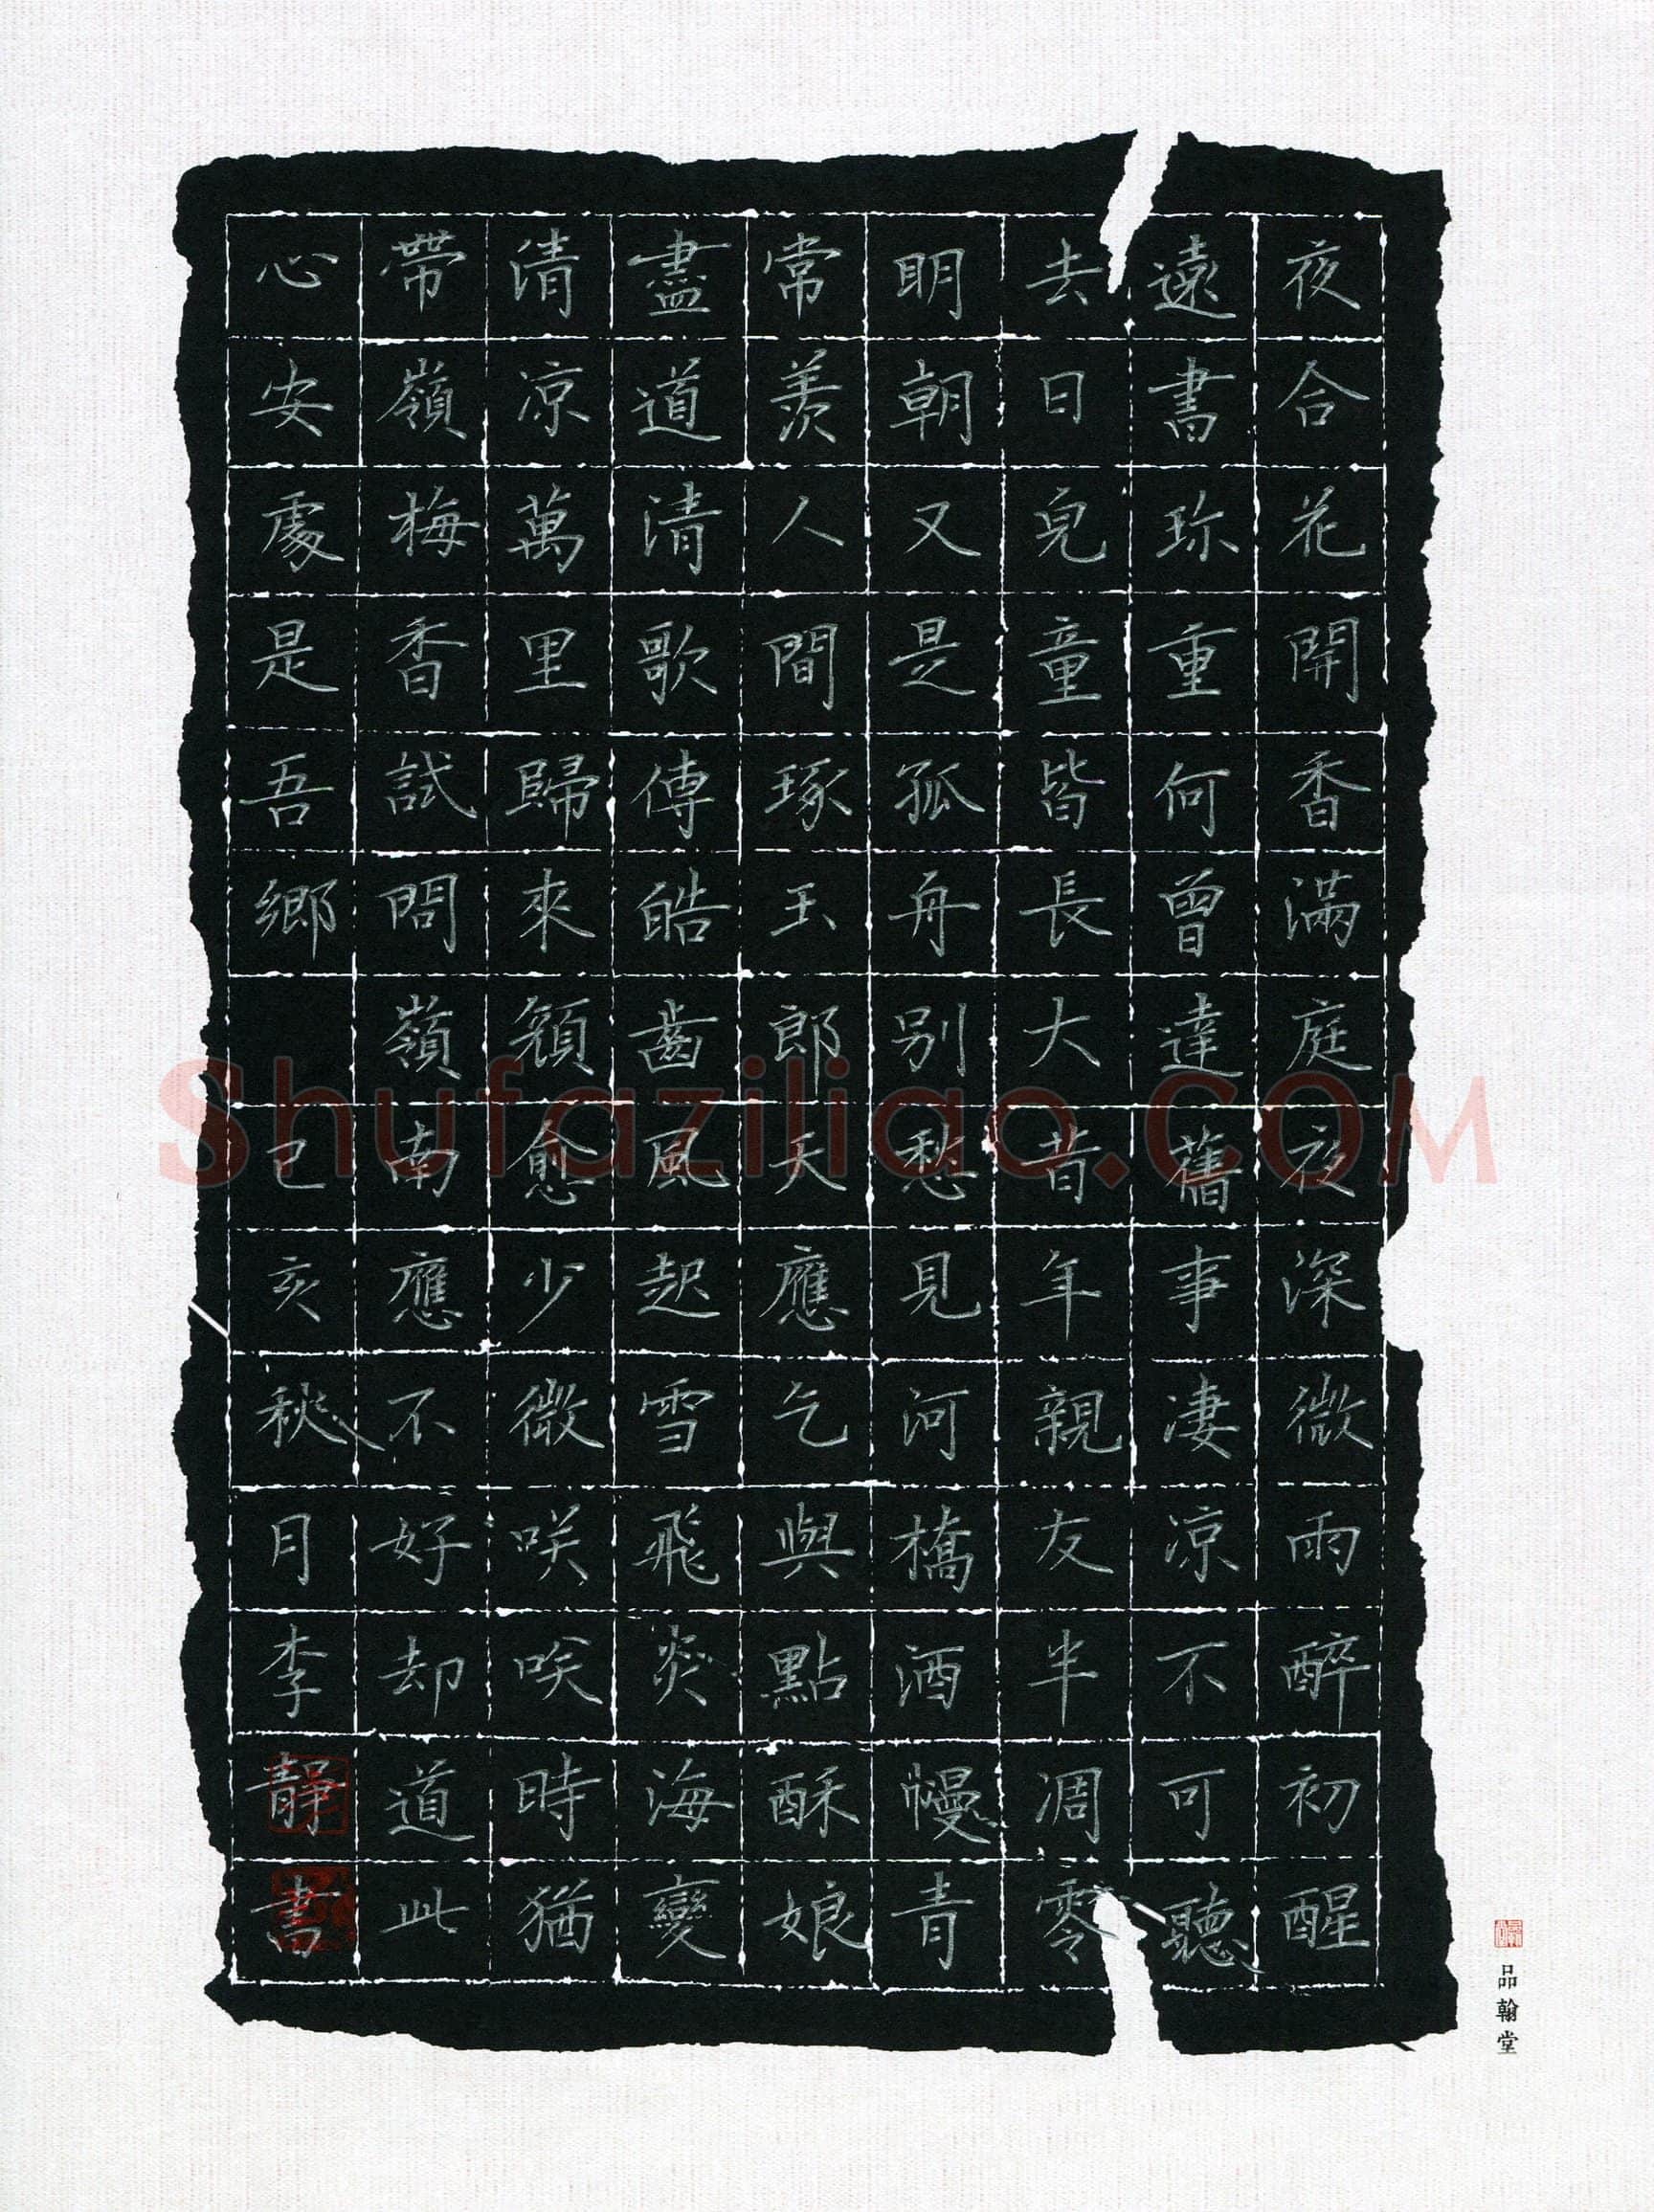 夜合花開香滿庭夜深微雨醉初醒
遠書珎重何曾達舊事凄凉不可聽
去日兒童皆長大昔年親友半凋零
明朝又是孤舟别愁見河橋酒幔青
常羨人間琢玉郎天應乞與點酥娘
盡道清歌傳皓齒風起雪飛炎海變
清凉萬里歸來顏愈少微咲咲時猶
帶嶺梅香試問嶺南應不好却道此
心安處是吾鄉 己亥秋月李靜書
品翰堂
Shufaziliao.COM